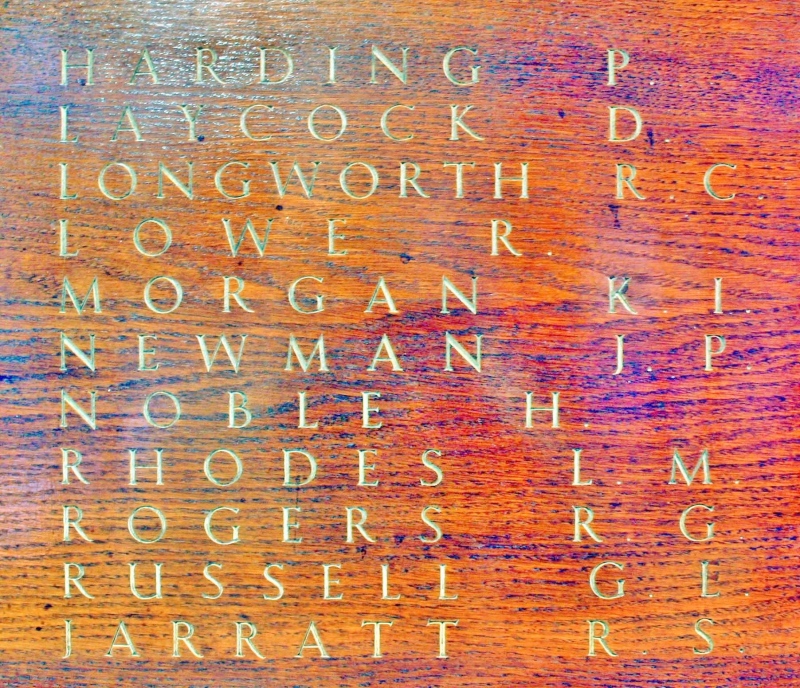 HARDING P.
LAYCOCK D.
LONGWORTH R. C.
LOWE R.
MORGAN K. I.
NEWMAN J. P.
NOBLE H.
RHODES L. M.
ROGERS R. G
RUSSELL G. E.
JARRATT R. S.